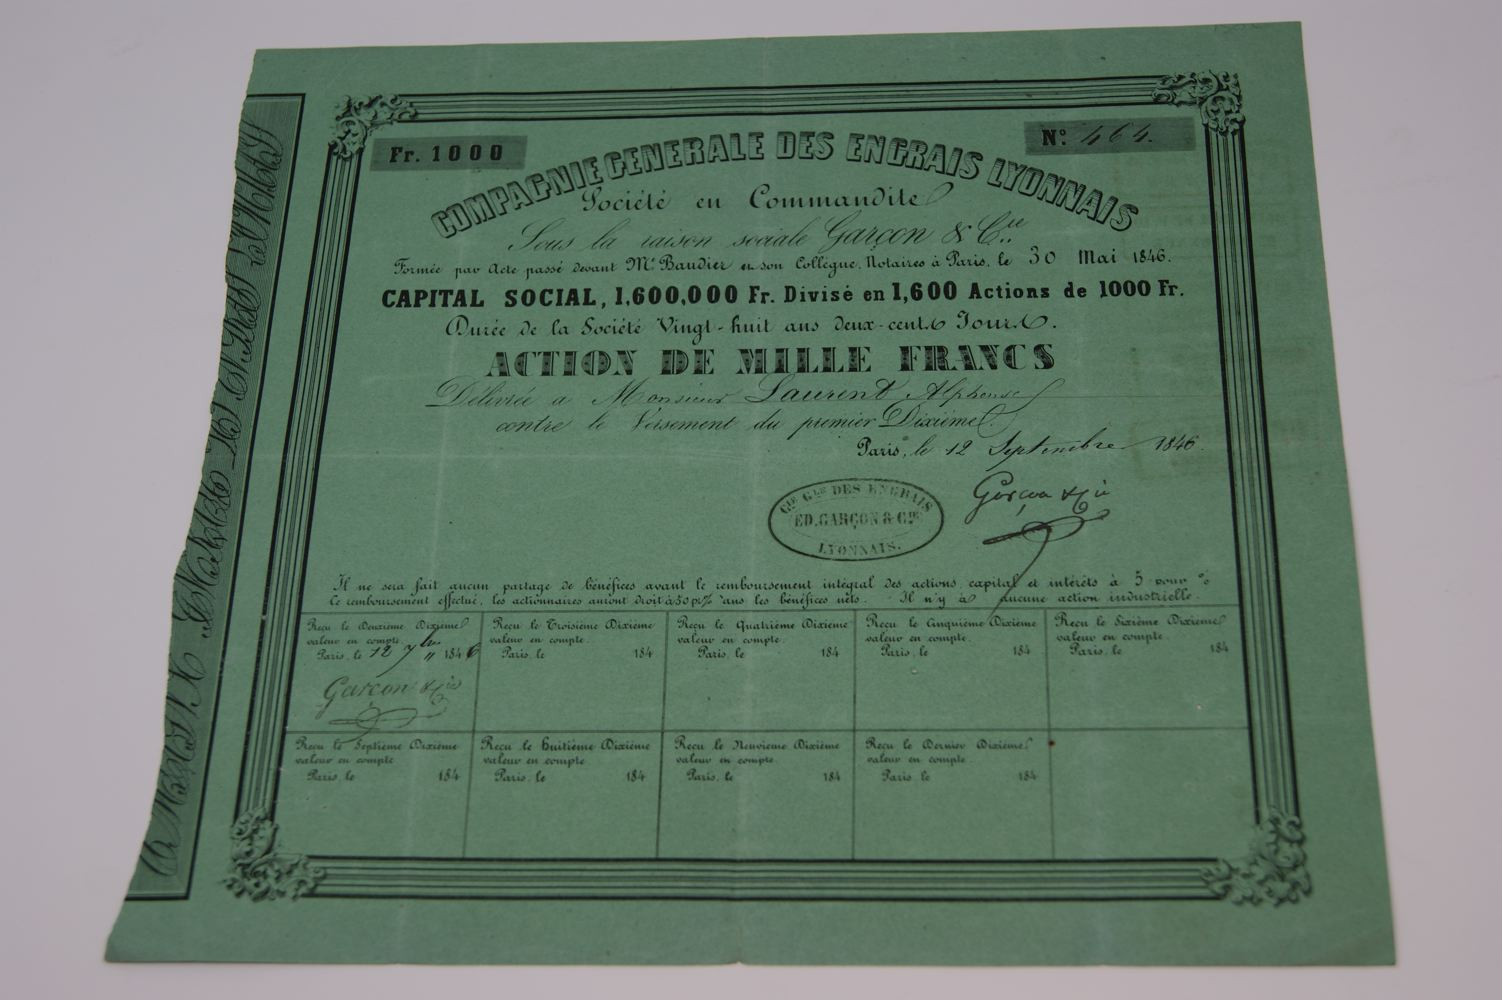 Fr. 1000
N° 464.
COMPAGNIE GENERALE DES ENGRAIS LYONNAIS
Société en Commandite
Sous la raison sociale Garçon & Cie
Formée par Acte passé devant Me Baudier et son Collègue, Notaires à Paris, le 30 Mai 1846.
CAPITAL SOCIAL, 1,600,000 Fr. Divisé en 1,600 Actions de 1000 Fr.
Durée de la Société Vingt-huit ans deux-cents Jours.
ACTION DE MILLE FRANCS
Délivrée a Monsieur Laurent Alphonse
contre le Versement du premier Dixième.
Paris, le 12 Septembre 1846.
Garçon & Cie
CIE GLE DES ENGRAIS
ED. GARÇON & CIE
LYONNAIS.
Il ne sera fait aucun partage de bénéfices avant le remboursement intégral des actions, capital et intérêts à 5 pour %
le remboursement effectué, les actionnaires auront droit à 50 pr% dans les bénéfices nets. Il n'y a aucune action industrielle.
Reçu le Deuxième Dixième
valeur en compte.
Paris, le 12 7bre 1846
Garçon & Cie
Reçu le Troisième Dixième
valeur en compte.
Paris, le 184
Reçu le Quatrième Dixième
valeur en compte.
Paris, le 184
Reçu le Cinquième Dixième
valeur en compte.
Paris, le 184
Reçu le Sixième Dixième
valeur en compte.
Paris, le 184
Reçu le Septième Dixième
valeur en compte
Paris, le 184
Reçu le huitième Dixième
valeur en compte
Paris, le 184
Reçu le Neuvième Dixième
valeur en compte.
Paris, le 184
Reçu le Dernier Dixième
valeur en compte.
Paris, le 184